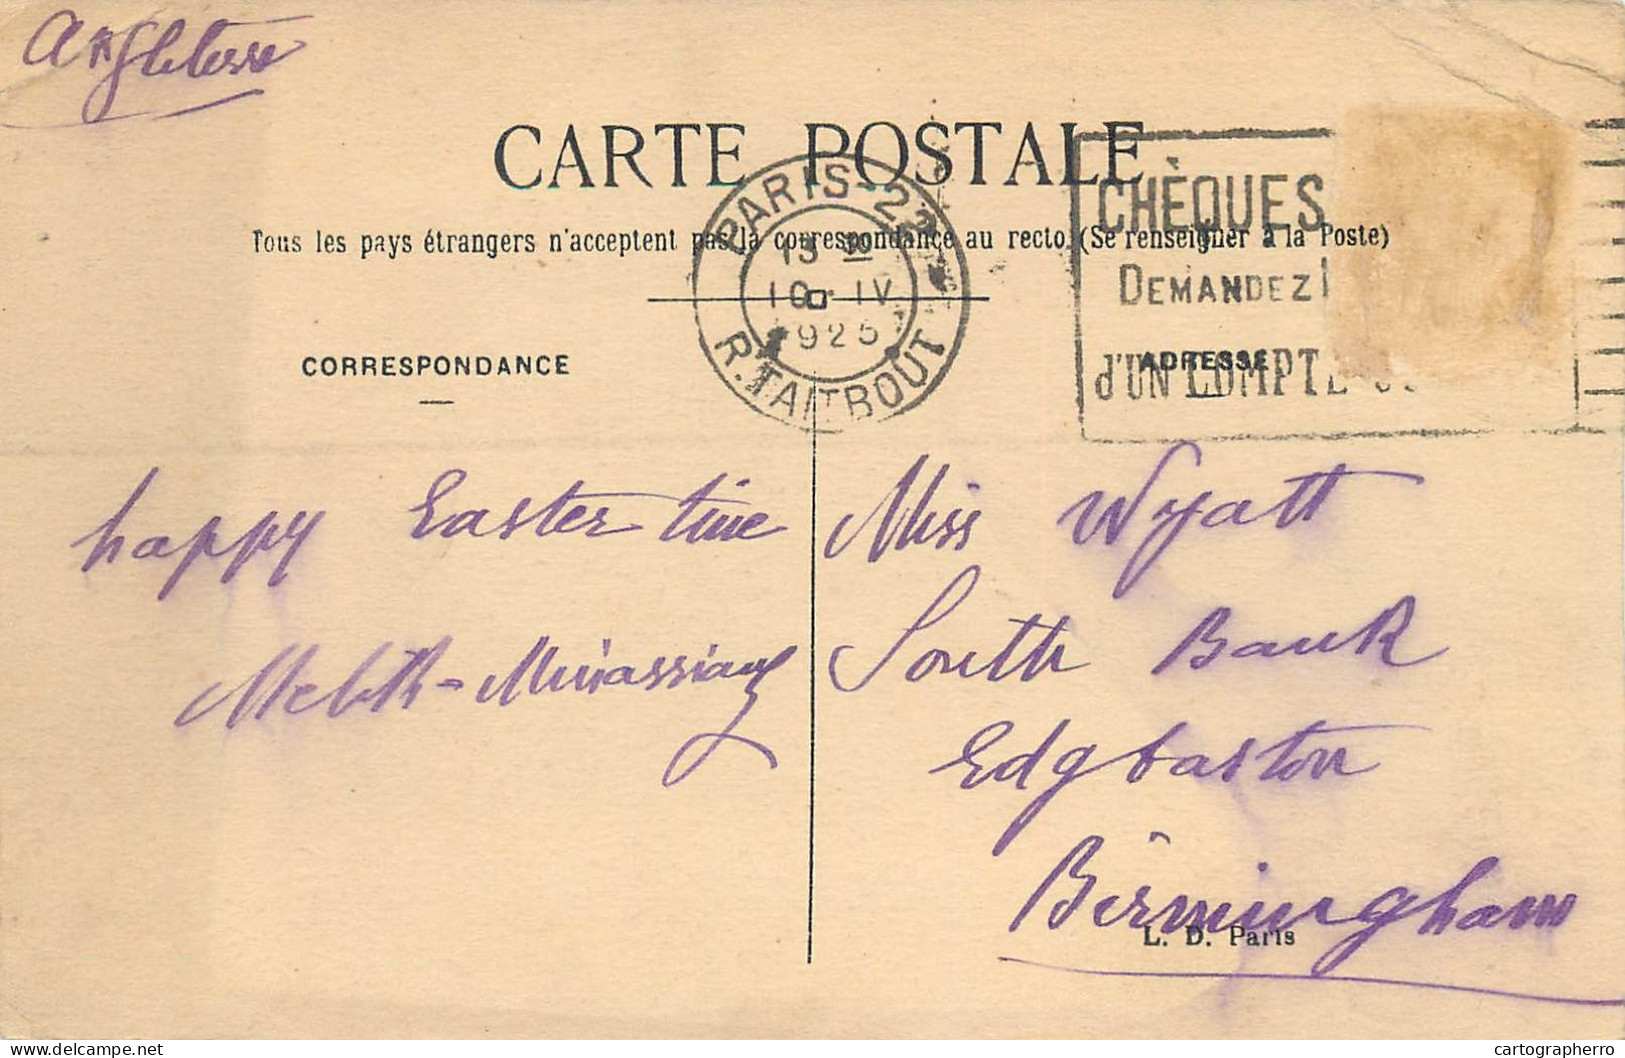 Angleterre
CARTE POSTALE
Tous les pays étrangers n'acceptent pas la correspondance au recto. (Se renseigner à la Poste)
PARIS-22
13 H
10 · IV
1925
R. TAITBOUT
CHÈQUES
DEMANDEZ
d'UN COMPTE
CORRESPONDANCE
ADRESSE
happy Easter time
Miss Wyatt
South Bank
Edgbaston
Birmingham
L. D. Paris
cartographerro